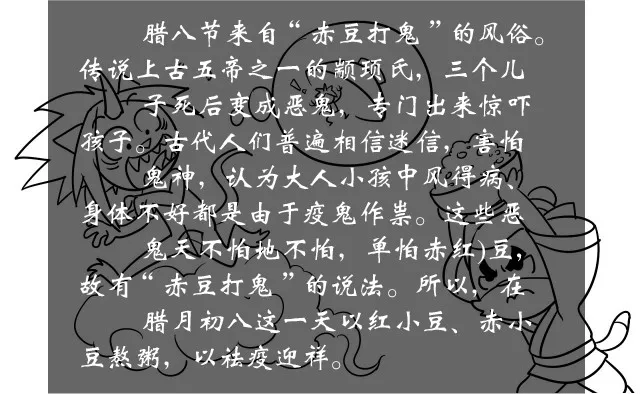 腊八节来自“赤豆打鬼”的风俗。
传说上古五帝之一的颛顼氏，三个儿
子死后变成恶鬼，专门出来惊吓
孩子。古代人们普遍相信迷信，害怕
鬼神，认为大人小孩中风得病、
身体不好都是由于疫鬼作祟。这些恶
鬼天不怕地不怕，单怕赤红)豆，
故有“赤豆打鬼”的说法。所以，在
腊月初八这一天以红小豆、赤小
豆熬粥，以祛疫迎祥。